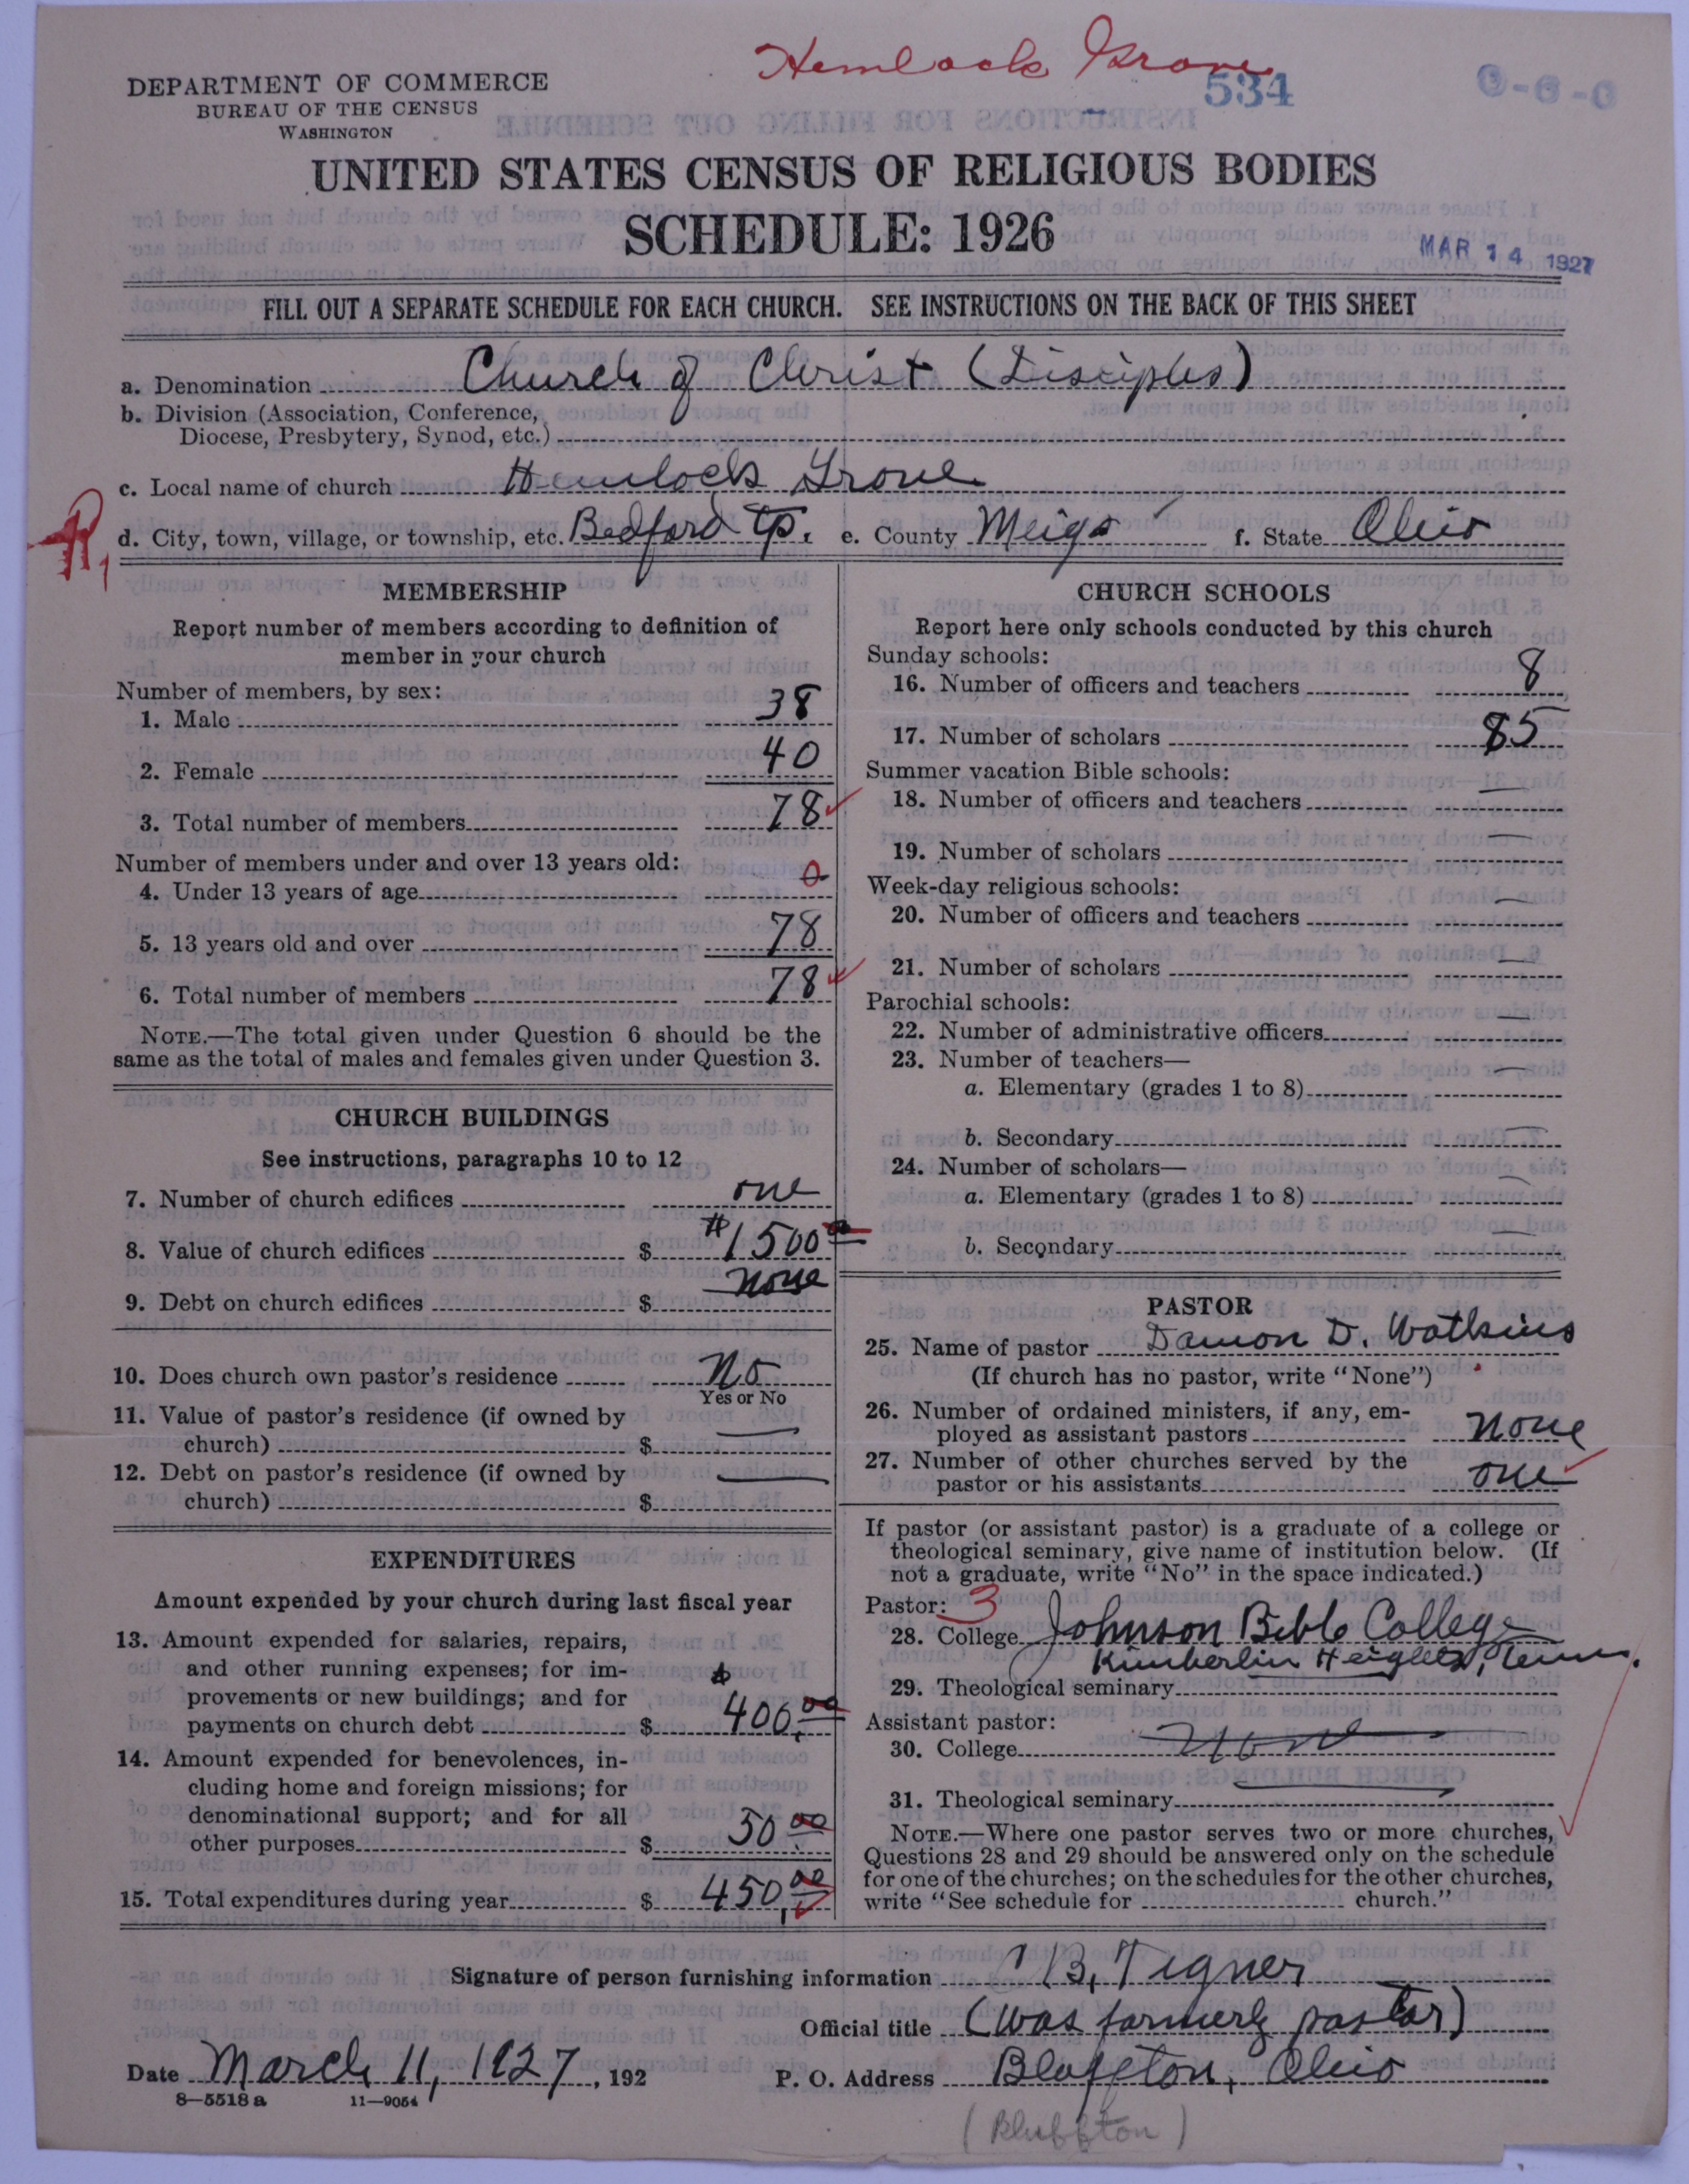 Hemlock Grove
534
DEPARTMENT OF COMMERCE
BUREAU OF THE CENSUS
WASHINGTON
UNITED STATES CENSUS OF RELIGIOUS BODIES
SCHEDULE: 1926
MAR 14 1927
FILL OUT A SEPARATE SCHEDULE FOR EACH CHURCH. SEE INSTRUCTIONS ON THE BACK OF THIS SHEET
a. Denomination Church of Christ (Disciples)
b. Division (Association, Conference,
Diocese, Presbytery, Synod, etc.)
c. Local name of church Hemlock Grove
d. City, town, village, or township, etc. Bedford Tp. e. County Meigs f. State Ohio
MEMBERSHIP
Report number of members according to definition of
member in your church
Number of members, by sex:
1. Male 38
2. Female 40
3. Total number of members 78
Number of members under and over 13 years old:
4. Under 13 years of age 0
5. 13 years old and over 78
6. Total number of members 78
NOTE.—The total given under Question 6 should be the
same as the total of males and females given under Question 3.
CHURCH BUILDINGS
See instructions, paragraphs 10 to 12
7. Number of church edifices one
8. Value of church edifices $ #1500 00
9. Debt on church edifices $ none
10. Does church own pastor's residence No
Yes or No
11. Value of pastor's residence (if owned by
church) $ —
12. Debt on pastor's residence (if owned by
church) $ —
EXPENDITURES
Amount expended by your church during last fiscal year
13. Amount expended for salaries, repairs,
and other running expenses; for im-
provements or new buildings; and for $
payments on church debt $ 400.00
14. Amount expended for benevolences, in-
cluding home and foreign missions; for
denominational support; and for all
other purposes $ 50 00
15. Total expenditures during year $ 450.00
CHURCH SCHOOLS
Report here only schools conducted by this church
Sunday schools:
16. Number of officers and teachers 8
17. Number of scholars 85
Summer vacation Bible schools:
18. Number of officers and teachers —
19. Number of scholars —
Week-day religious schools:
20. Number of officers and teachers —
21. Number of scholars —
Parochial schools:
22. Number of administrative officers —
23. Number of teachers—
a. Elementary (grades 1 to 8) —
b. Secondary —
24. Number of scholars—
a. Elementary (grades 1 to 8) —
b. Secondary —
PASTOR
25. Name of pastor Damon D. Watkins
(If church has no pastor, write "None")
26. Number of ordained ministers, if any, em-
ployed as assistant pastors none
27. Number of other churches served by the
pastor or his assistants one
If pastor (or assistant pastor) is a graduate of a college or
theological seminary, give name of institution below. (If
not a graduate, write "No" in the space indicated.)
Pastor: 3
28. College Johnson Bible College
Kimberlin Heights, Tenn.
29. Theological seminary
Assistant pastor:
30. College None
31. Theological seminary —
NOTE.—Where one pastor serves two or more churches,
Questions 28 and 29 should be answered only on the schedule
for one of the churches; on the schedules for the other churches,
write "See schedule for church."
Signature of person furnishing information C B. Tigner
Official title (was formerly pastor)
Date March 11, 1927, 192 P. O. Address Bluffton, Ohio
8—5518 a 11—9054
(Bluffton)